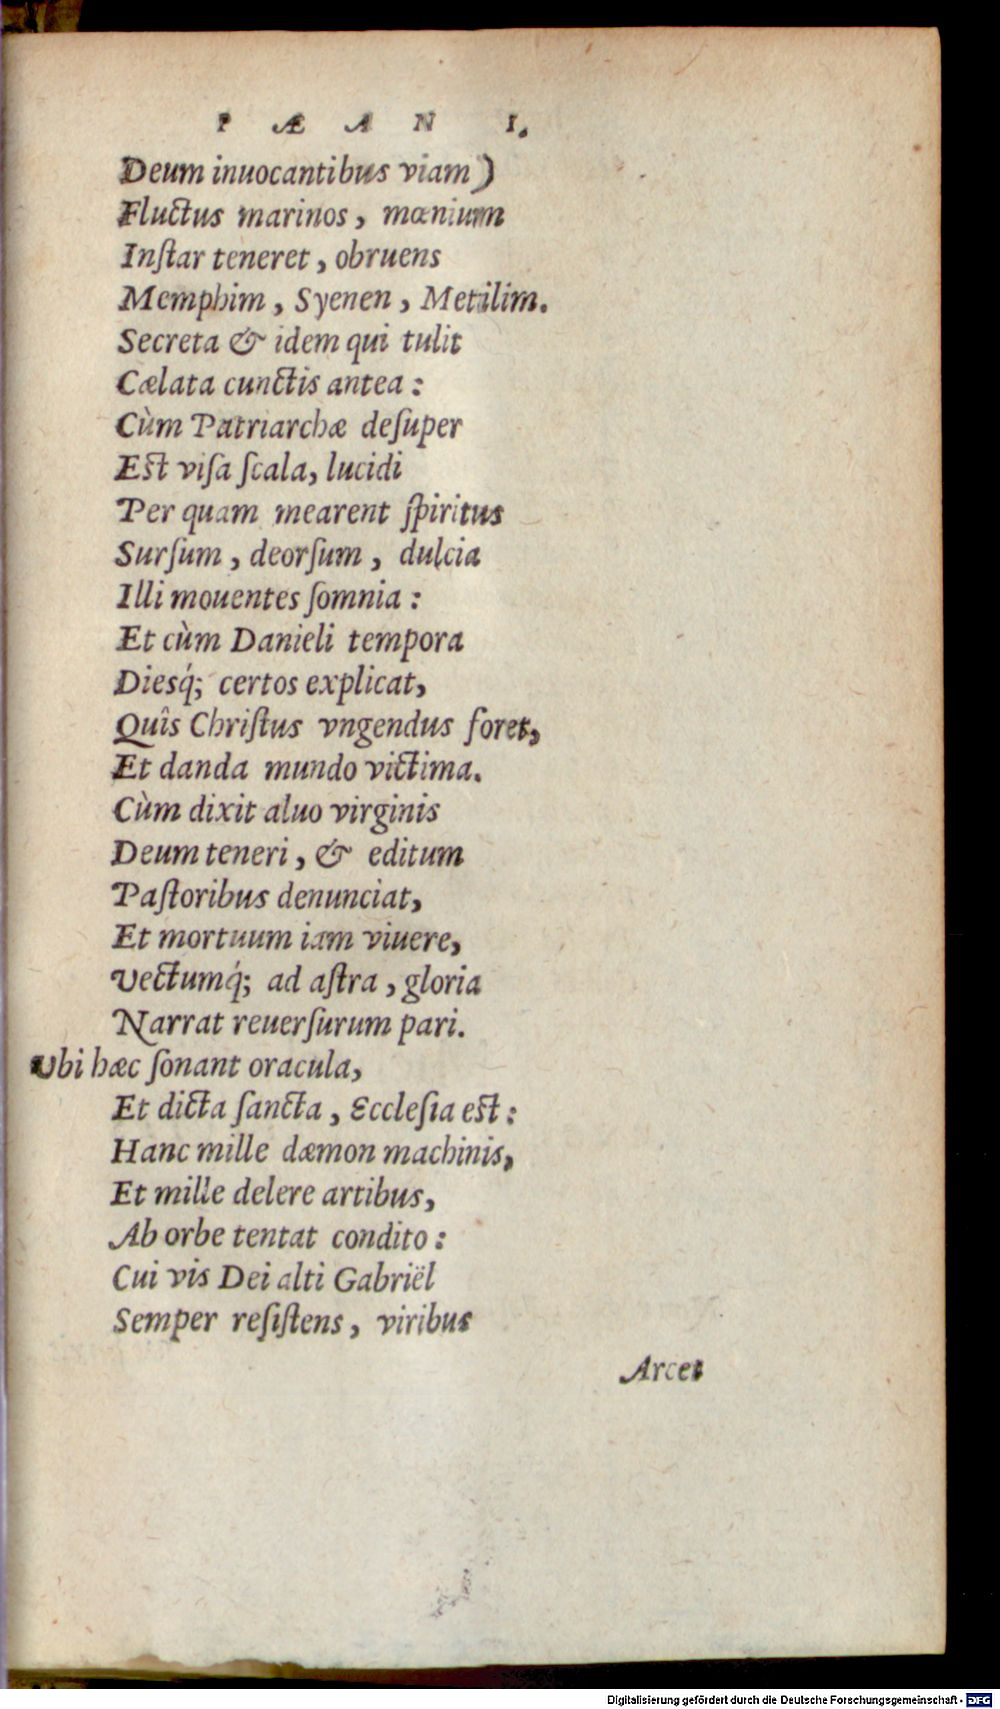 P Æ A N I.
Deum inuocantibus viam)
Fluctus marinos, mœnium
Inſtar teneret, obruens
Memphim, Syenen, Metilim.
Secreta & idem qui tulit
Cælata cunctis antea:
Cùm Patriarchæ deſuper
Eſt viſa ſcala, lucidi
Per quam mearent ſpiritus
Surſum, deorſum, dulcia
Illi mouentes ſomnia:
Et cùm Danieli tempora
Diesq́; certos explicat,
Quîs Chriſtus vngendus foret,
Et danda mundo victima.
Cùm dixit aluo virginis
Deum teneri, & editum
Paſtoribus denunciat,
Et mortuum iam viuere,
Vectumq́; ad aſtra, gloria
Narrat reuerſurum pari.
Vbi hæc ſonant oracula,
Et dicta ſancta, Eccleſia eſt:
Hanc mille dæmon machinis,
Et mille delere artibus,
Ab orbe tentat condito:
Cui vis Dei alti Gabriël
Semper reſiſtens, viribus
Arcet
Digitalisierung gefördert durch die Deutsche Forschungsgemeinschaft - DFG